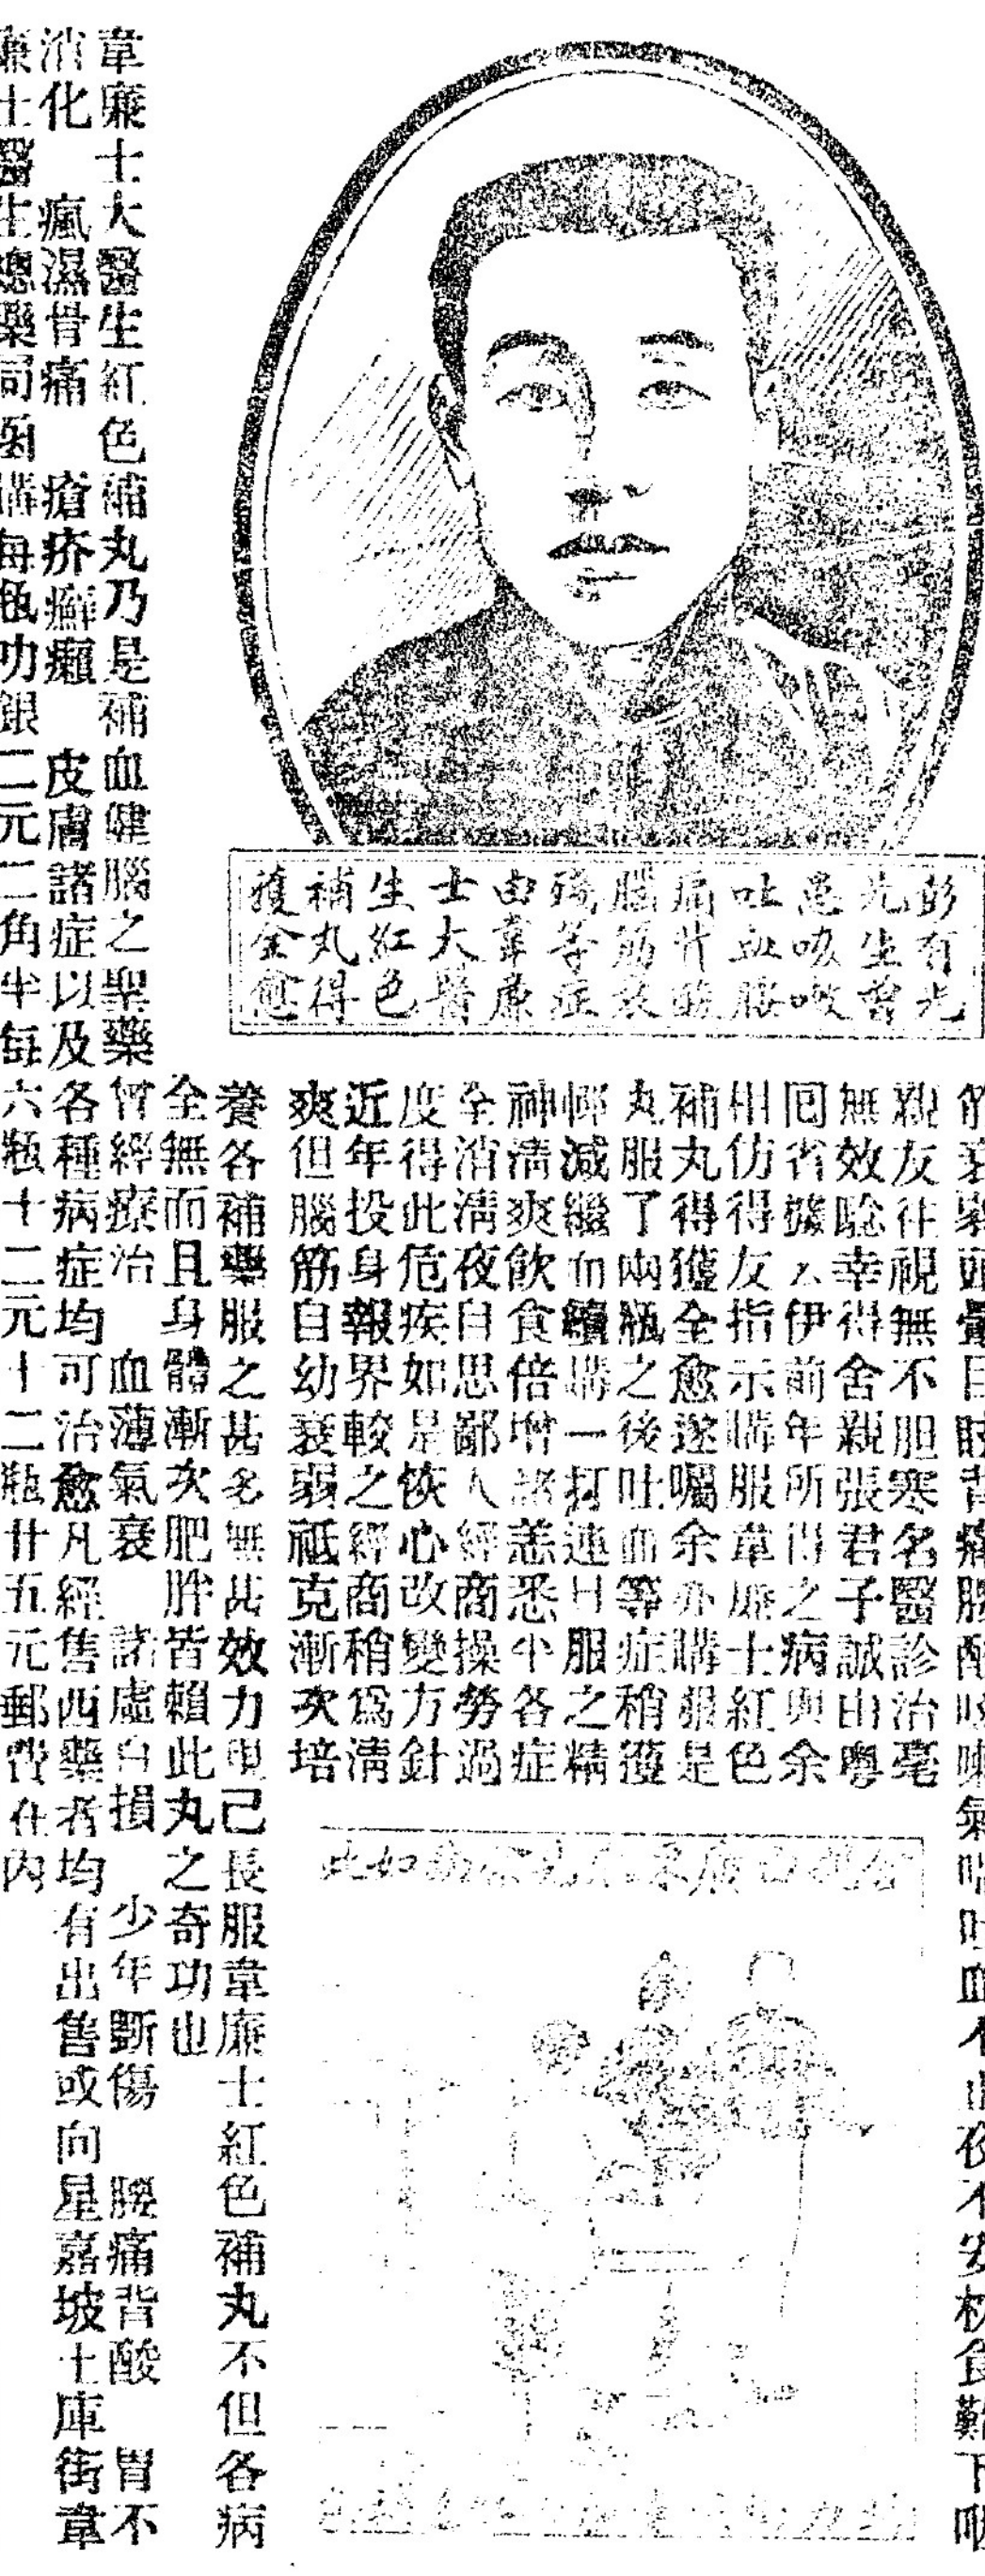 彭有光
先生曾
患咳嗽
吐血腰
痛背酸
腦筋衰
殘等症
由韋廉
士大醫
生紅色
補丸得
獲全愈
筋衰弱頭暈目眩背痛腰酸咳嗽氣喘吐血不止夜不安枕食難下咽
親友往視無不胆寒名醫診治毫
無效諗幸得舍親張君子誠由粵
囘省據云伊前年所得之病與余
相仿得友指示購服韋廉士紅色
補丸得獲全愈遂囑余亦購服是
丸服了兩瓶之後吐血等症稍獲
輕減繼而續購一打連日服之精
神清爽飲食倍增諸恙悉平各症
全消清夜自思鄙人經商操勞過
度得此危疾如是恢心改變方針
近年投身報界較之經商稍爲清
爽但腦筋自幼衰弱祗克漸次培
養各補藥服之甚多無甚效力現己長服韋廉士紅色補丸不但各病
全無而且身體漸次肥胖皆賴此丸之奇功也
韋廉士大醫生紅色補丸乃是補血健腦之聖藥曾經療治 血薄氣衰 諸虛百損 少年斲傷 腰痛背酸 胃不
消化 瘋濕骨痛 瘡疥癬癩 皮膚諸症以及各種病症均可治愈凡經售西藥者均有出售或向星嘉坡土庫街韋
廉士醫生總藥局函購每瓶功銀二元二角半每六瓶十二元十二瓶廿五元郵費在內
如此